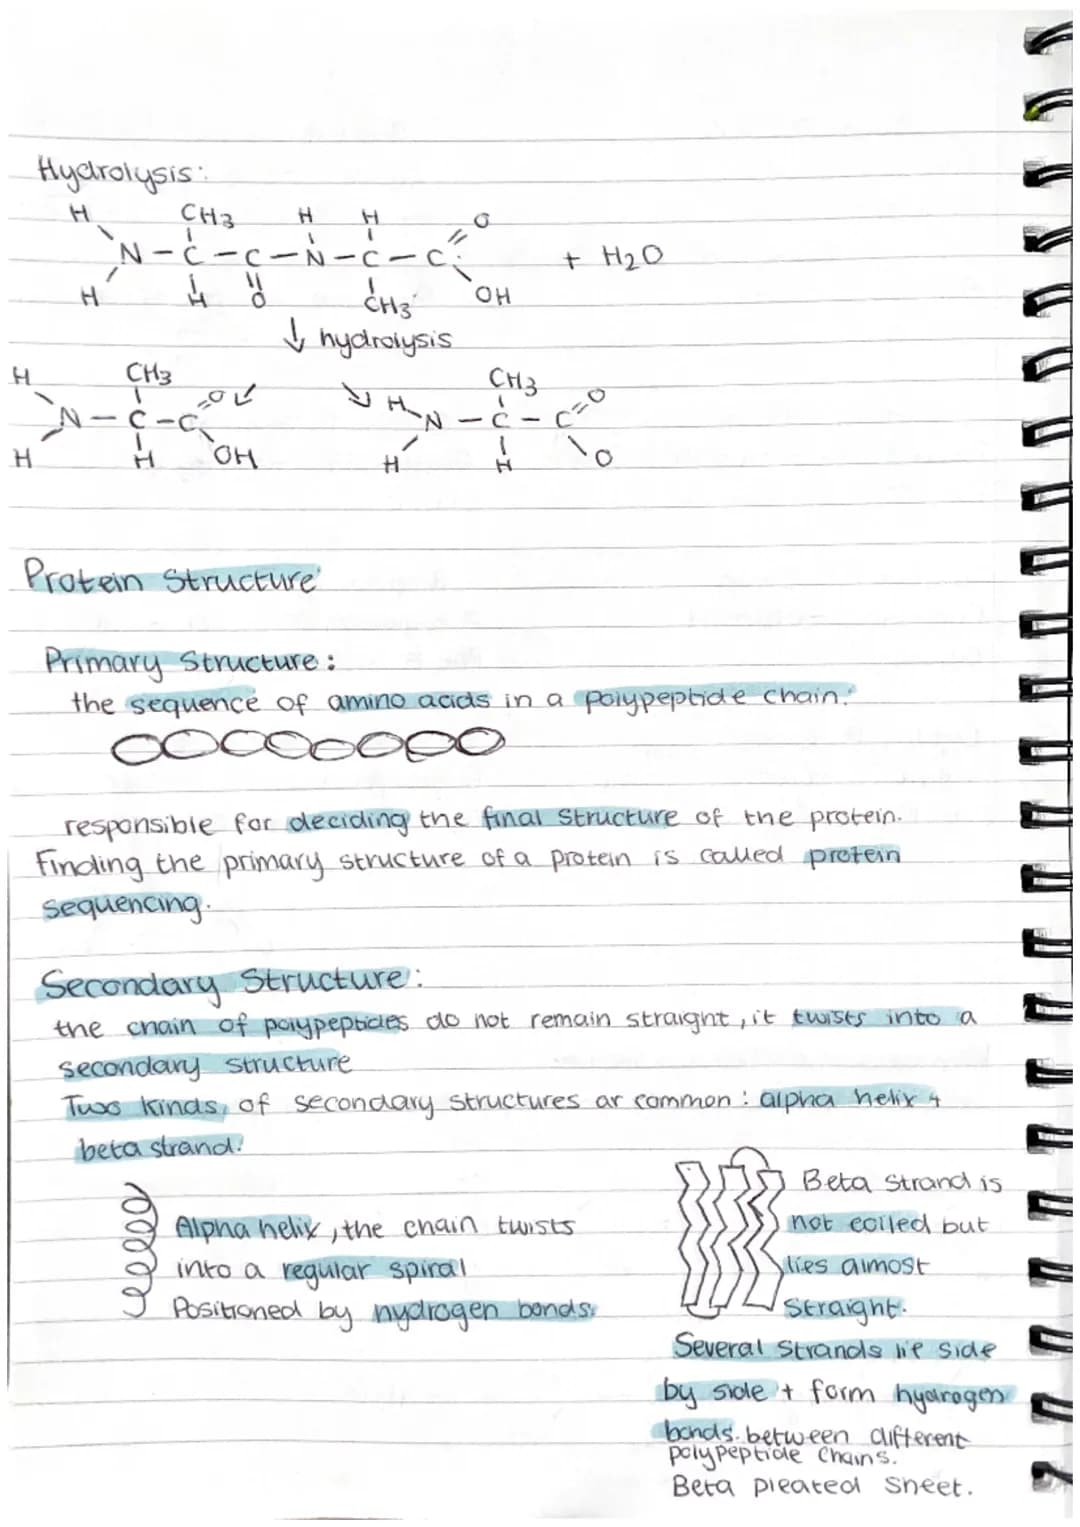 Hydrolysis:
H CH3 H H O
N - C - C - N - C - C
H H O CH3 OH
+ H2O
↓ hydrolysis
H CH3 O
N - C - C
H H OH
H CH3 O
N - C - C
H H O
Protein Structure
Primary Structure:
the sequence of amino acids in a polypeptide chain.
responsible for deciding the final structure of the protein.
Finding the primary structure of a protein is called protein
sequencing.
Secondary Structure:
the chain of polypeptides do not remain straight, it twists into a
secondary structure
Two kinds, of secondary structures ar common: alpha helix +
beta strand.
Alpha helix, the chain twists
into a regular spiral
Positioned by hydrogen bonds.
Beta Strand is
not coiled but
lies almost
straight.
Several Strands lie side
by side + form hydrogen
bonds. between different
polypeptide chains.
Beta pleated Sheet.